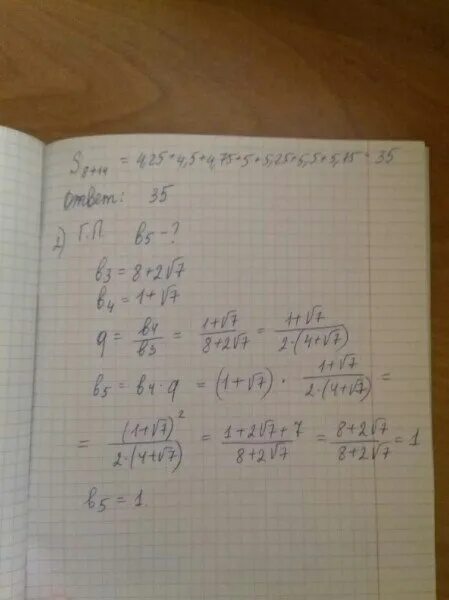 S₈₊₁₄ = 4,25+4,5+4,75+5+5,25+5,5+5,75 = 35
Ответ: 35
2) Г.П b₅ - ?
b₃ = 8+2√7
b₄ = 1+√7
q = b₄/b₃ = (1+√7)/(8+2√7) = (1+√7)/(2·(4+√7))
b₅ = b₄·q = (1+√7) · (1+√7)/(2·(4+√7)) =
= (1+√7)²/(2·(4+√7)) = (1+2√7+7)/(8+2√7) = (8+2√7)/(8+2√7) = 1
b₅ = 1.